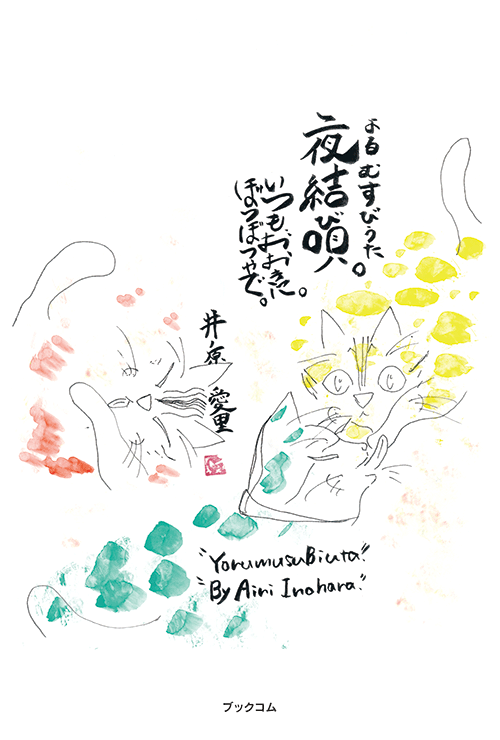 よるむすびうた
夜結び唄。
いつも、おおきに。
ぼつぼつやで。
井原 愛里
"YorumusuBiuta"
"By Airi Inohara"
ブックコム